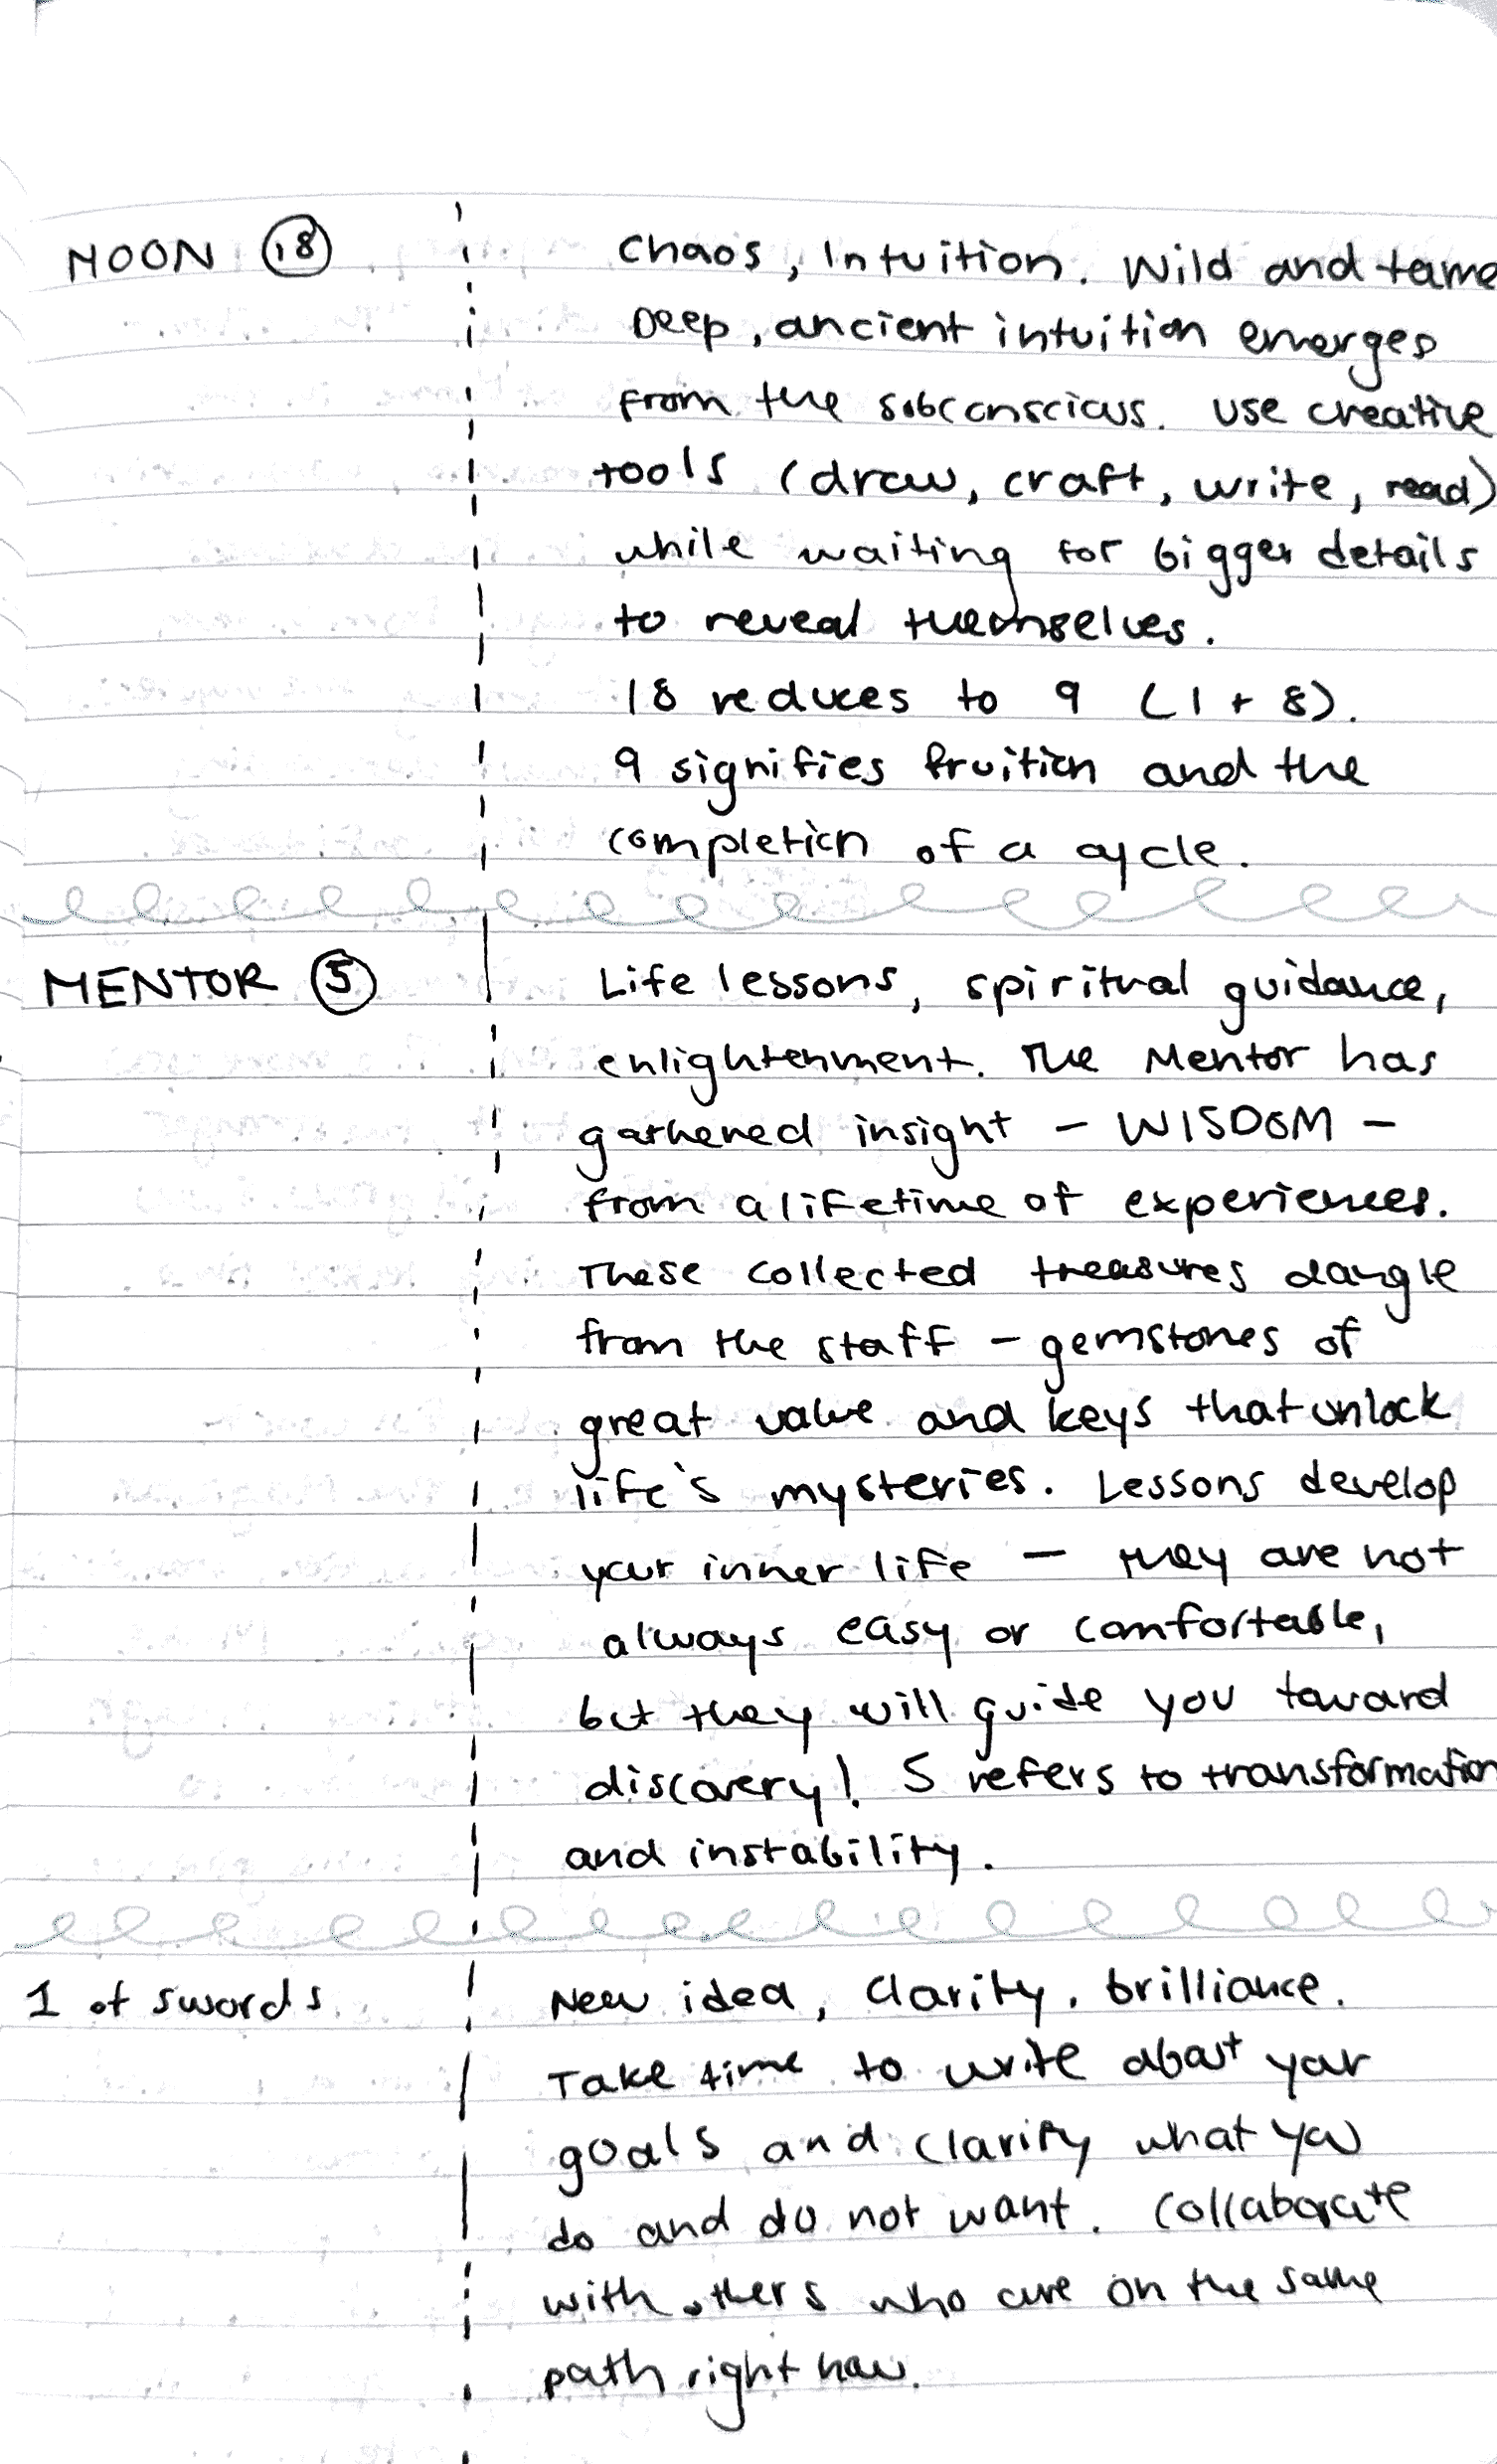 MOON 18
Chaos, Intuition. Wild and tame
Deep, ancient intuition emerges
from the subconscious. Use creative
tools (draw, craft, write, read)
while waiting for bigger details
to reveal themselves.
18 reduces to 9 (1 + 8).
9 signifies fruition and the
completion of a cycle.
MENTOR 5
Life lessons, spiritual guidance,
enlightenment. The Mentor has
gathered insight – WISDOM –
from a lifetime of experiences.
These collected treasures dangle
from the staff – gemstones of
great value and keys that unlock
life's mysteries. Lessons develop
your inner life – they are not
always easy or comfortable,
but they will guide you toward
discovery! 5 refers to transformation
and instability.
1 of swords
New idea, Clarity, brilliance.
Take time to write about your
goals and clarify what you
do and do not want. Collaborate
with others who are on the same
path right now.